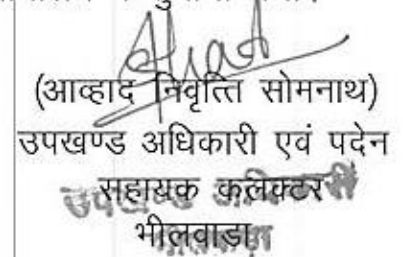 (आव्हाद निवृत्ति सोमनाथ)
उपखण्ड अधिकारी एवं पदेन
सहायक कलेक्टर
भीलवाड़ा
उपखण्ड अधिकारी